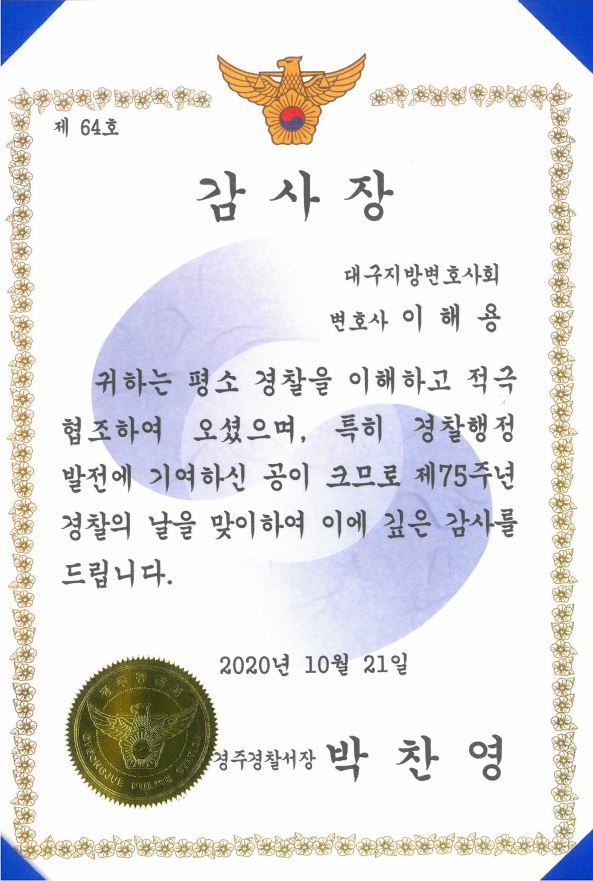 제 64호
감 사 장
대구지방변호사회
변호사 이 해 용
귀하는 평소 경찰을 이해하고 적극
협조하여 오셨으며, 특히 경찰행정
발전에 기여하신 공이 크므로 제75주년
경찰의 날을 맞이하여 이에 깊은 감사를
드립니다.
2020년 10월 21일
경주경찰서
GYEONGJU POLICE STATION
경주경찰서장 박 찬 영